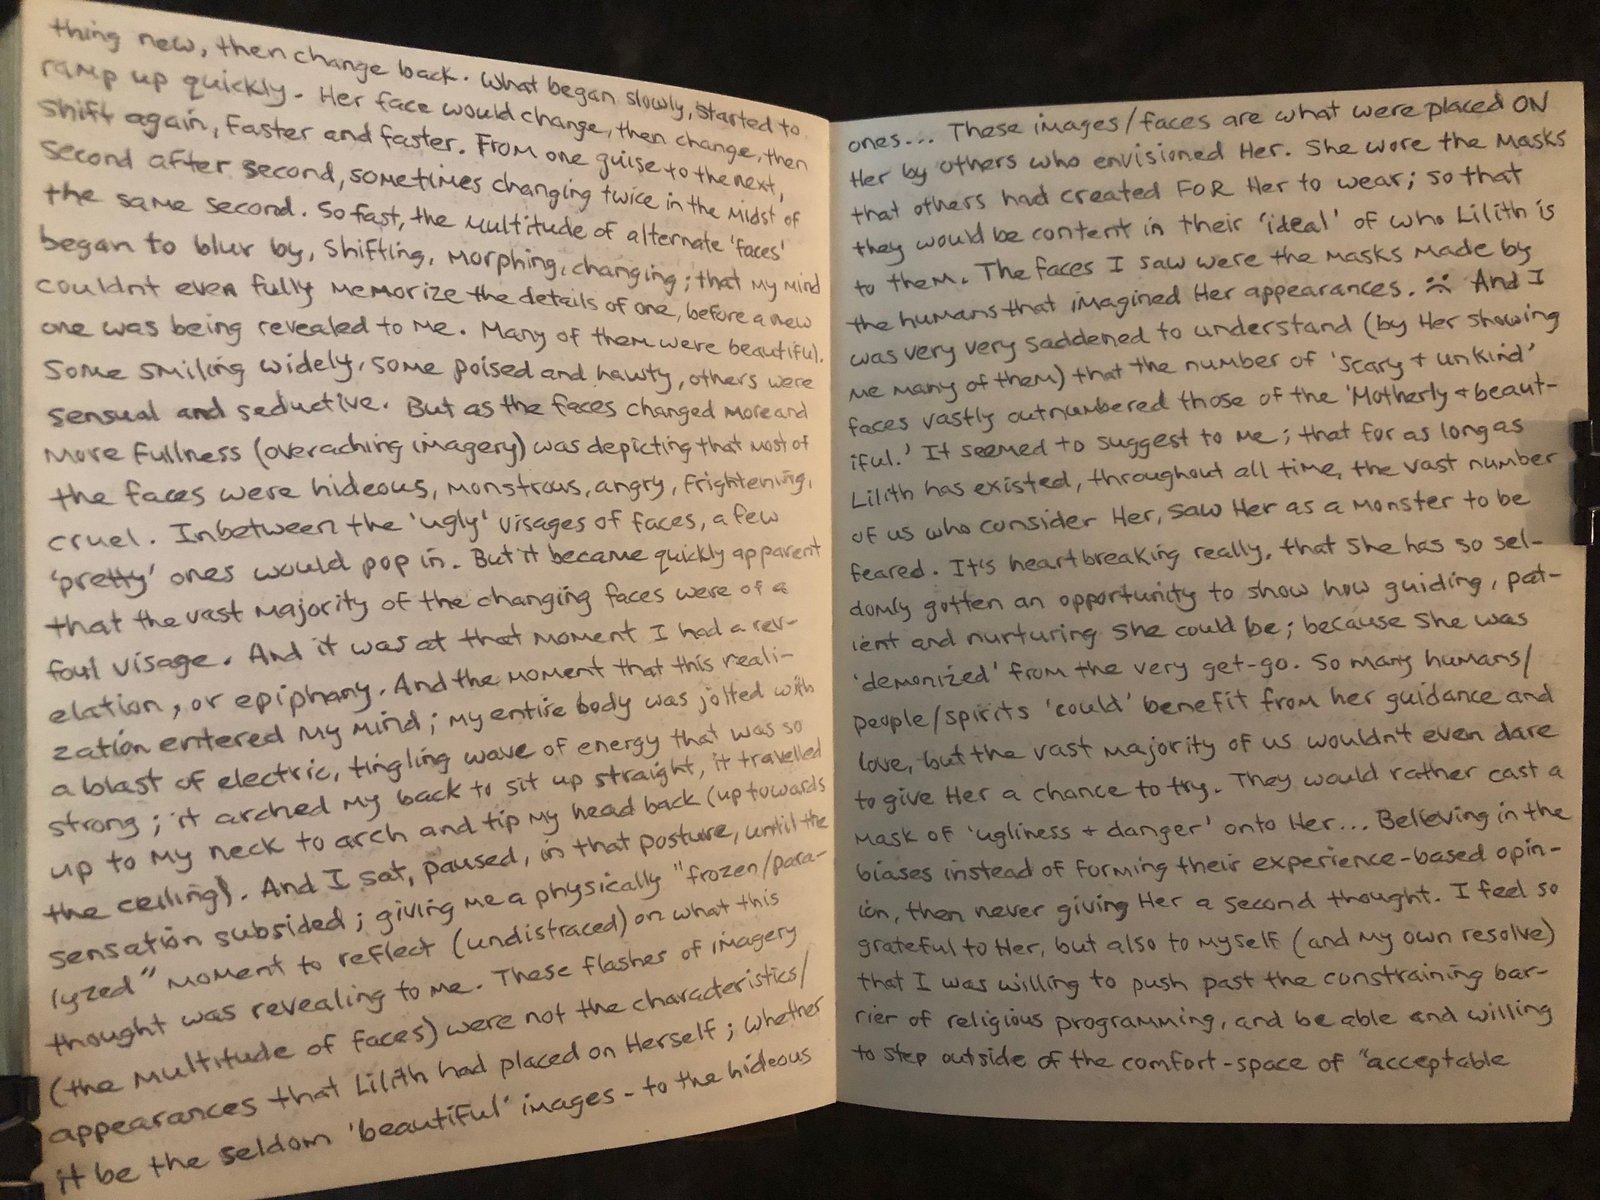 thing new, then change back. What began slowly, started to
ramp up quickly. Her face would change, then change, then
shift again, faster and faster. From one guise to the next,
second after second, sometimes changing twice in the midst of
the same second. So fast, the multitude of alternate 'faces'
began to blur by, shifting, morphing, changing; that my mind
couldnt even fully memorize the details of one, before a new
one was being revealed to me. Many of them were beautiful.
Some smiling widely, some poised and hawty, others were
sensual and seductive. But as the faces changed more and
more fullness (overaching imagery) was depicting that most of
the faces were hideous, monstrous, angry, frightening,
cruel. Inbetween the 'ugly' visages of faces, a few
'pretty' ones would pop in. But it became quickly apparent
that the vast majority of the changing faces were of a
foul visage. And it was at that moment I had a rev-
elation, or epiphany. And the moment that this reali-
zation entered my mind; my entire body was jolted with
a blast of electric, tingling wave of energy that was so
strong; it arched my back to sit up straight, it travelled
up to my neck to arch and tip my head back (up towards
the ceiling). And I sat, paused, in that posture, until the
sensation subsided; giving me a physically "frozen/para-
lyzed" moment to reflect (undistraced) on what this
thought was revealing to me. These flashes of imagery
(the multitude of faces) were not the characteristics/
appearances that Lilith had placed on Herself; whether
it be the seldom 'beautiful' images - to the hideous
ones... These images/faces are what were placed ON
Her by others who envisioned Her. She wore the masks
that others had created FOR Her to wear; so that
they would be content in their 'ideal' of who Lilith is
to them. The faces I saw were the masks made by
the humans that imagined Her appearances. :( And I
was very very saddened to understand (by Her showing
me many of them) that the number of 'scary + unkind'
faces vastly outnumbered those of the 'Motherly + beaut-
iful.' It seemed to suggest to me; that for as long as
Lilith has existed, throughout all time, the vast number
of us who consider Her, saw Her as a monster to be
feared. It's heartbreaking really, that She has so sel-
domly gotten an opportunity to show how guiding, pat-
ient and nurturing She could be; because She was
'demonized' from the very get-go. So many humans/
people/spirits 'could' benefit from her guidance and
love, but the vast majority of us wouldn't even dare
to give Her a chance to try. They would rather cast a
mask of 'ugliness + danger' onto Her... Believing in the
biases instead of forming their experience-based opin-
ion, then never giving Her a second thought. I feel so
grateful to Her, but also to myself (and my own resolve)
that I was willing to push past the constraining bar-
rier of religious programming, and be able and willing
to step outside of the comfort-space of "acceptable